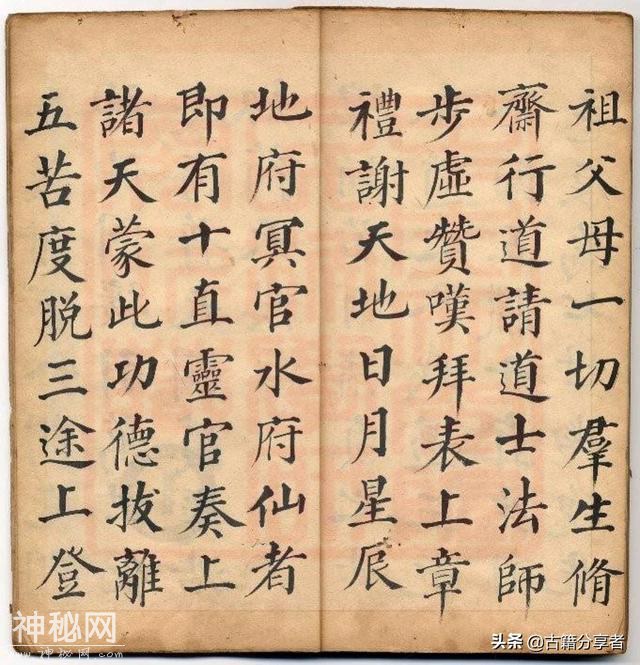 祖父母一切羣生脩
齋行道請道士法師
步虛贊嘆拜表上章
禮謝天地日月星辰
地府冥官水府仙者
即有十直靈官奏上
諸天蒙此功德拔離
五苦度脱三途上登
神秘网
头条 @古籍分享者